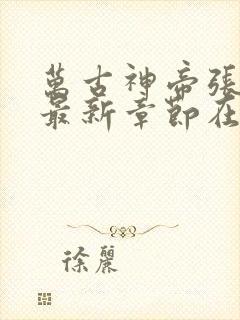 萬古神帝張
最新章節在
徐麗